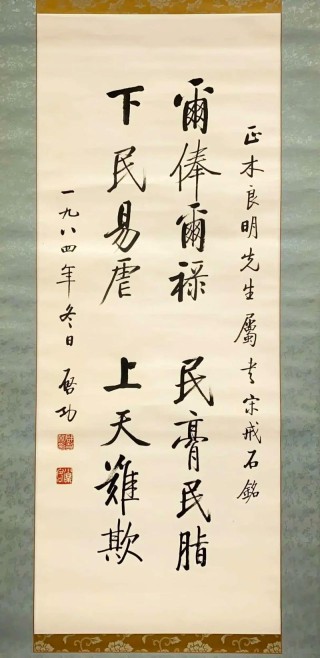 正木良明先生屬書宋戒石銘
爾俸爾祿 民膏民脂
下民易虐 上天難欺
一九八四年冬日 启功